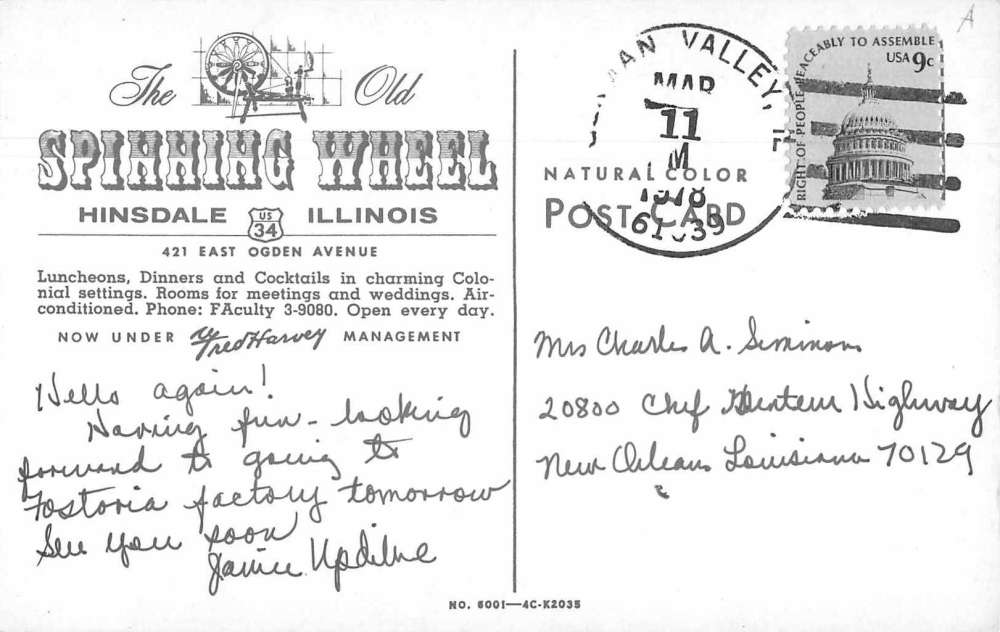 The Old
SPINNING WHEEL
HINSDALE US 34 ILLINOIS
421 EAST OGDEN AVENUE
Luncheons, Dinners and Cocktails in charming Colo-
nial settings. Rooms for meetings and weddings. Air-
conditioned. Phone: FAculty 3-9080. Open every day.
NOW UNDER Fred Harvey MANAGEMENT
Hello again!
Having fun - looking
forward to going to
Fostoria factory tomorrow
See you soon
Janice
NO. 6001—4C-K2035
NATURAL COLOR
POST CARD
VALLEY,
MAR
11
M
61039
RIGHT OF PEOPLE PEACEABLY TO ASSEMBLE
USA 9c
A
Mrs Charles A. Simmons
20800 Chef Highway
New Orleans Louisiana 70129